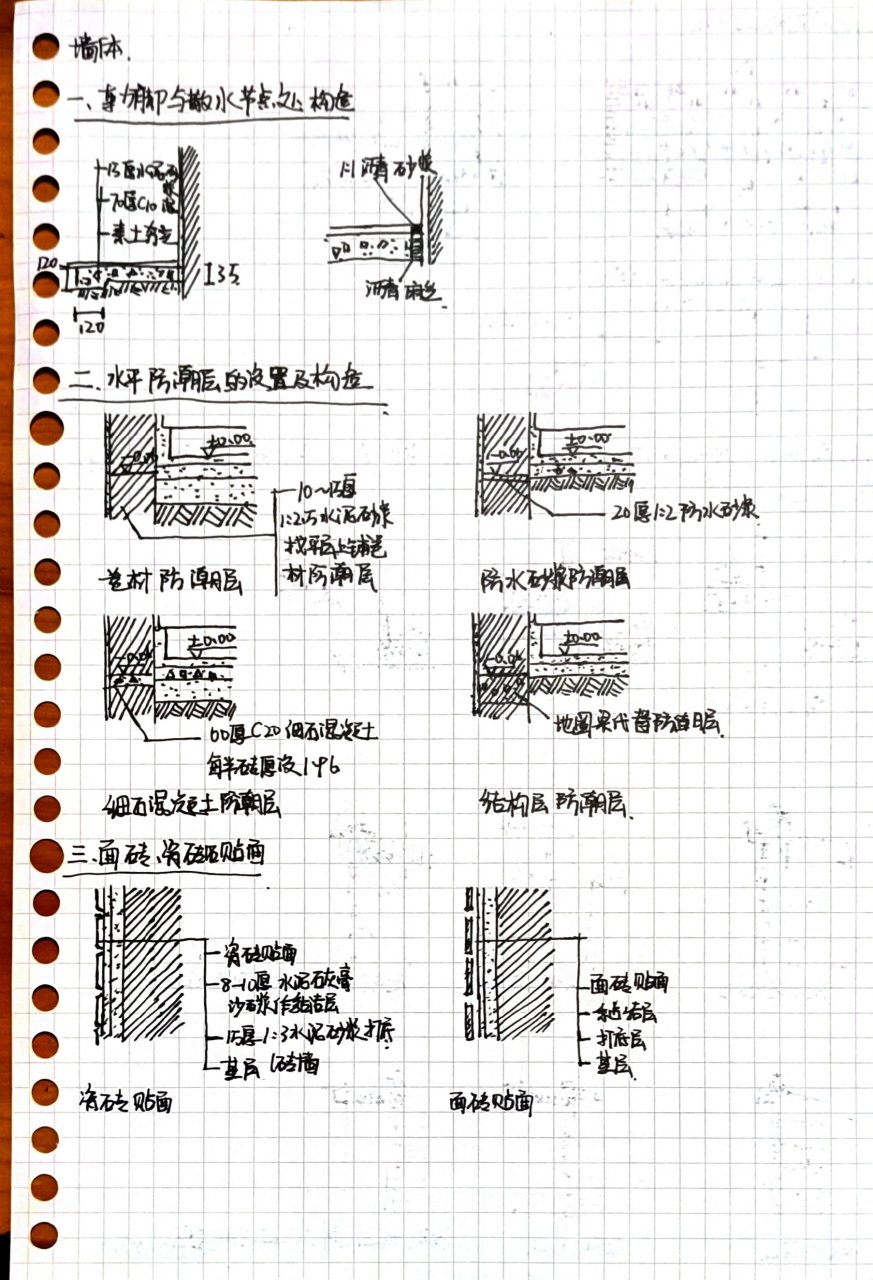 墙体.
一、勒脚与散水节点处构造
15厚水泥砂浆
70厚C10混
素土夯实
120
135
120
1:1沥青砂浆
沥青麻丝
二、水平防潮层的设置及构造
±0.00
-0.06
10~15厚
1:2.5水泥砂浆
找平层上铺卷
材防潮层
卷材防潮层
±0.00
-0.06
20厚1:2防水砂浆
防水砂浆防潮层
±0.00
-0.06
60厚C20细石混凝土
每半砖厚设1Φ6
细石混凝土防潮层
±0.00
-0.06
地圈梁代替防潮层.
结构层防潮层.
三、面砖、瓷砖贴面
瓷砖贴面
8-10厚水泥石灰膏
沙浆作粘结层
15厚1:3水泥砂浆打底
基层 砖墙
瓷砖贴面
面砖贴面
粘结层
打底层
基层.
面砖贴面